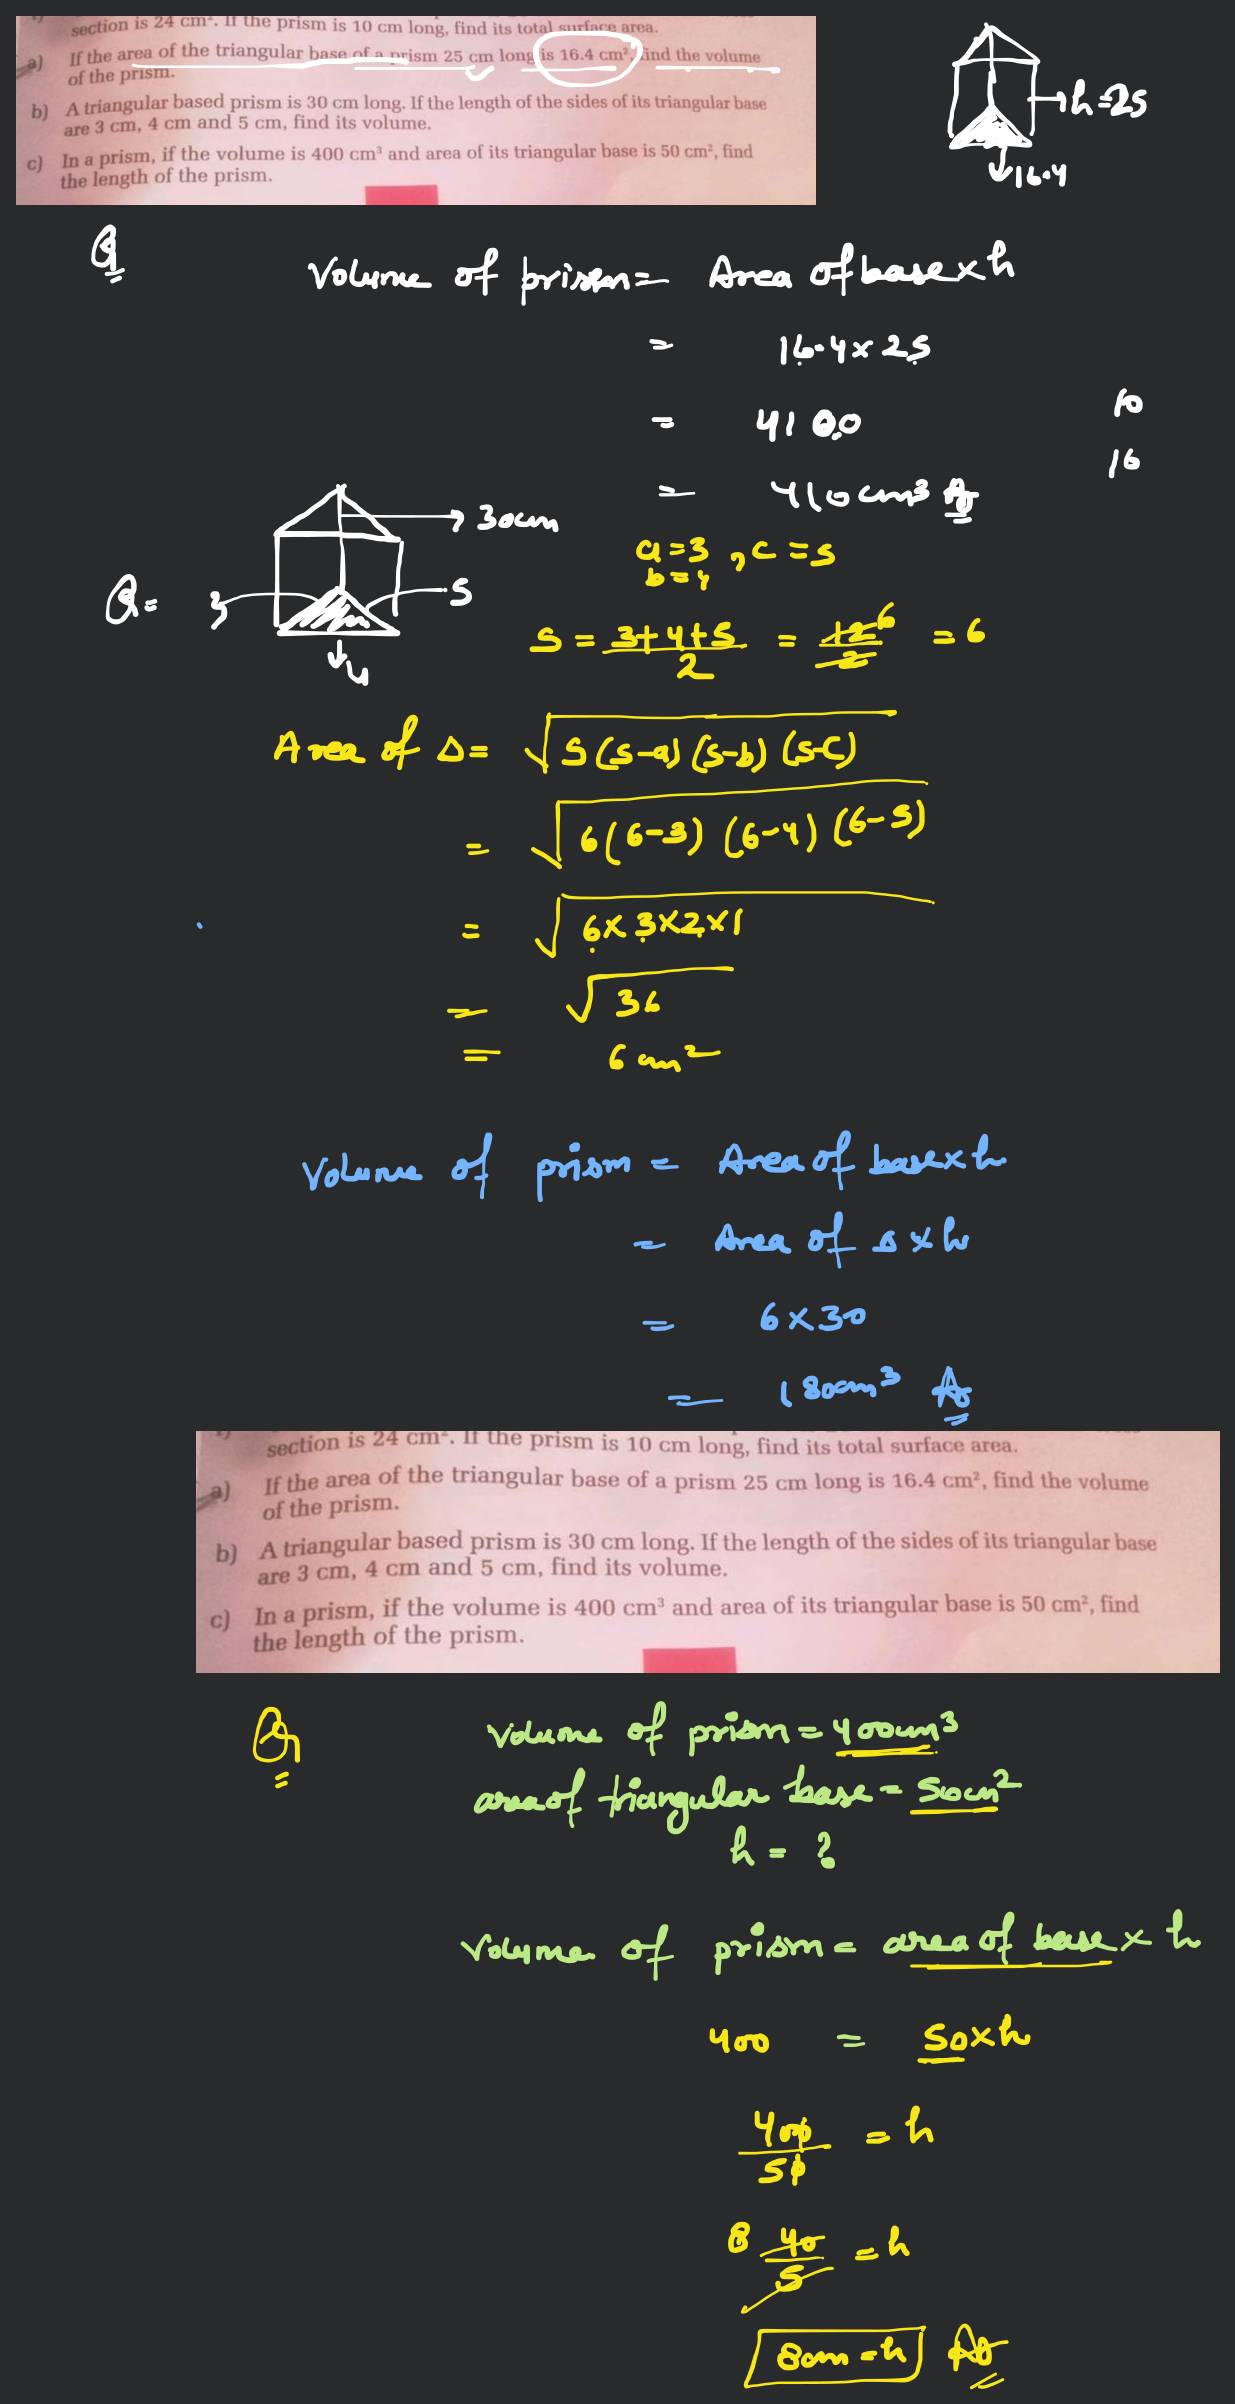 section is 24 cm². If the prism is 10 cm long, find its total surface area.
a) If the area of the triangular base of a prism 25 cm long is 16.4 cm², find the volume
of the prism.
b) A triangular based prism is 30 cm long. If the length of the sides of its triangular base
are 3 cm, 4 cm and 5 cm, find its volume.
c) In a prism, if the volume is 400 cm³ and area of its triangular base is 50 cm², find
the length of the prism.
h=25
16.4
Q
Volume of prism = Area of base x h
= 16.4 x 25
= 410.0
10
16
= 410 cm³
30cm
a=3, c=5
b=4
Q= 3
5
4
S = 3+4+5/2 = 12/2 6 = 6
Area of Δ = √S(S-a)(S-b)(S-C)
= √6(6-3)(6-4)(6-5)
= √6x3x2x1
= √36
= 6 cm²
Volume of prism = Area of base x h
= Area of Δ x h
= 6 x 30
= 180cm³
section is 24 cm². If the prism is 10 cm long, find its total surface area.
a) If the area of the triangular base of a prism 25 cm long is 16.4 cm², find the volume
of the prism.
b) A triangular based prism is 30 cm long. If the length of the sides of its triangular base
are 3 cm, 4 cm and 5 cm, find its volume.
c) In a prism, if the volume is 400 cm³ and area of its triangular base is 50 cm², find
the length of the prism.
Volume of prism = 400cm³
area of triangular base = 50cm²
h = ?
Volume of prism = area of base x h
400 = 50xh
400/50 = h
8 40/5 = h
8cm = h